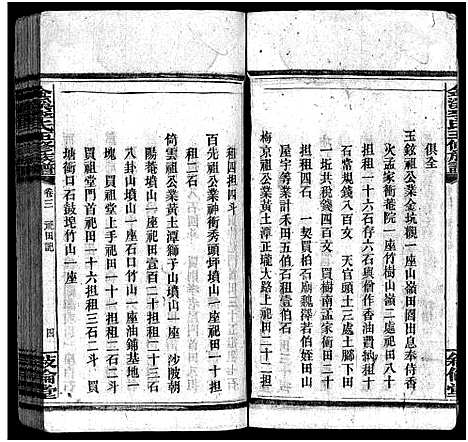 俱全
玉鉉祖公業金坑觀一座山嶺田閣出息奉侍香
火孟家衝菴院一座竹樹山嶺二處祀田八十
担租一十六石六斗六石與僧作香油費納
石常規錢八百文 天官頭土三處土腳下田
一坵共稅錢四百文 買樹南孟家衝田一
租四石 一契買柏石廟魏澤若伯姪田山
屋宇等業計禾田五伯石租壹伯石
梅京祖公業黃土潭正壠大路上祀田一十二担
租四担四斗
百先祖公業神衝秀頭坪墳山一座
倚雲祖公業黃土潭獅子山墳山一座 沙陂朝
陽菴墳山一座祀田壹百二十担租一十担
八卦山一座石口竹山一座油鋪基地一
塊 買祖堂上手祀田一十担租二石二斗
買祖堂門首祀田一十六担租三石二斗 買
塘衝口石鼓坨竹山一座
卷三 祀田記
四
敘倫堂